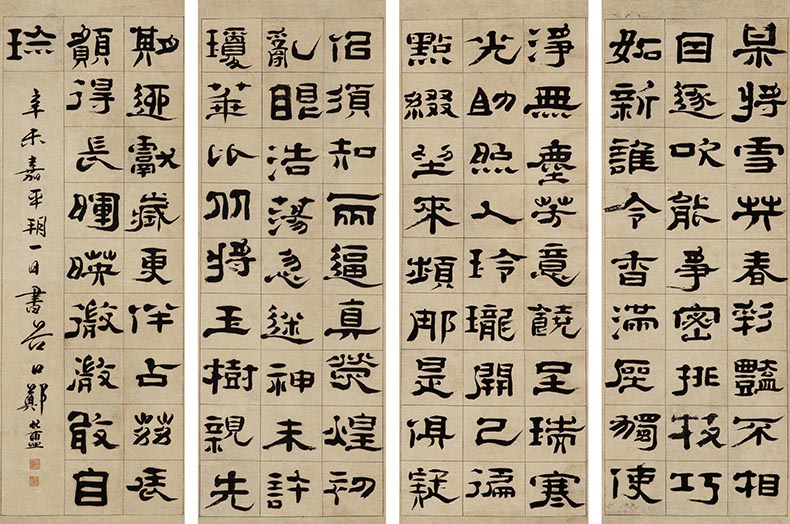 呆將雪共春彩豔不相
因逐吹能爭密排枝巧
妬新誰令香滿座獨使
淨無塵芳意饒呈瑞寒
光助照人玲瓏開已徧
點綴坐來頻那是俱疑
侣須知兩逼真熒煌初
亂眼浩蕩忽迷神未許
瓊華比從將玉樹親先
期迎獻歲更伴占茲辰
願得長暉映激敢自
珎
辛未嘉平朔一日書谷口鄭簠